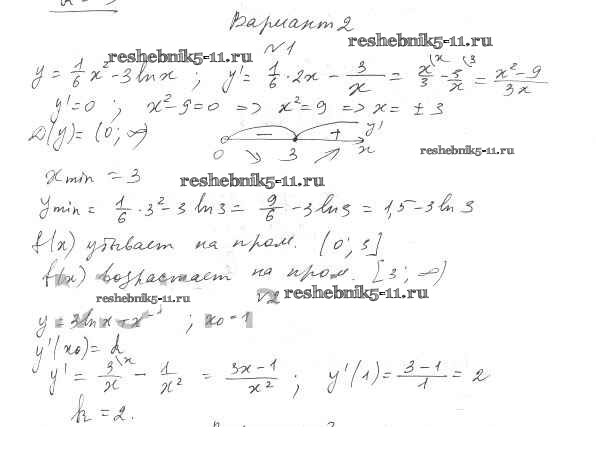 Вариант 2
reshebnik5-11.ru
№1
reshebnik5-11.ru
y = 1/6 x² - 3 ln x ; y' = 1/6 · 2x - 3/x = x/3 - 3/x = (x² - 9)/(3x)
y' = 0 ; x² - 9 = 0 => x² = 9 => x = ± 3
D(y) = (0; ∞) − + y'
0 3 x
reshebnik5-11.ru
x min = 3
reshebnik5-11.ru
y min = 1/6 · 3² - 3 ln 3 = 9/6 - 3 ln 3 = 1,5 - 3 ln 3
f(x) убывает на пром. (0; 3]
f(x) возрастает на пром. [3; ∞)
reshebnik5-11.ru
№2
reshebnik5-11.ru
y = 3 ln x + x⁻¹ ; x₀ = 1
y'(x₀) = k
y' = 3/x - 1/x² = (3x - 1)/x² ; y'(1) = (3 - 1)/1 = 2
k = 2.